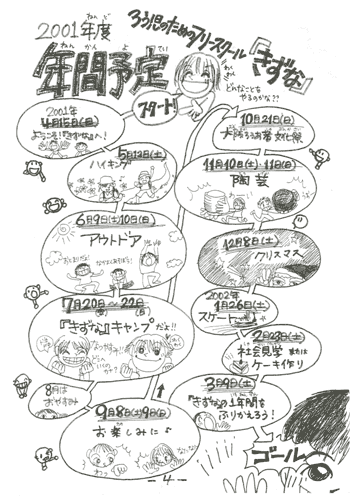 2001年度
年間予定
ねんど
ねんかんよてい
ろう児のためのフリースクール
『きずな』
わい わい
どんなことを
やるのかな??
スタート!
2001年
4月15日(日)
ようこそ!『きずな』へ!
5月12日(土)
ハイキング
6月9日(土)10日(日)
アウトドア
7月20日〜22日
『きずな』キャンプだよ!!
8月は
おやすみ
9月8日(土)9日(日)
お楽しみに♪
10月21日(日)
大阪ろうあ者文化祭
11月10日(土)・11日(日)
陶芸
12月8日(土)
クリスマス
2002年
1月26日(土)
スケート
2月23日(土)
社会見学 または
ケーキ作り
3月9日(土)
『きずな』の1年間を
ふりかえろう!
ゴール
-4-